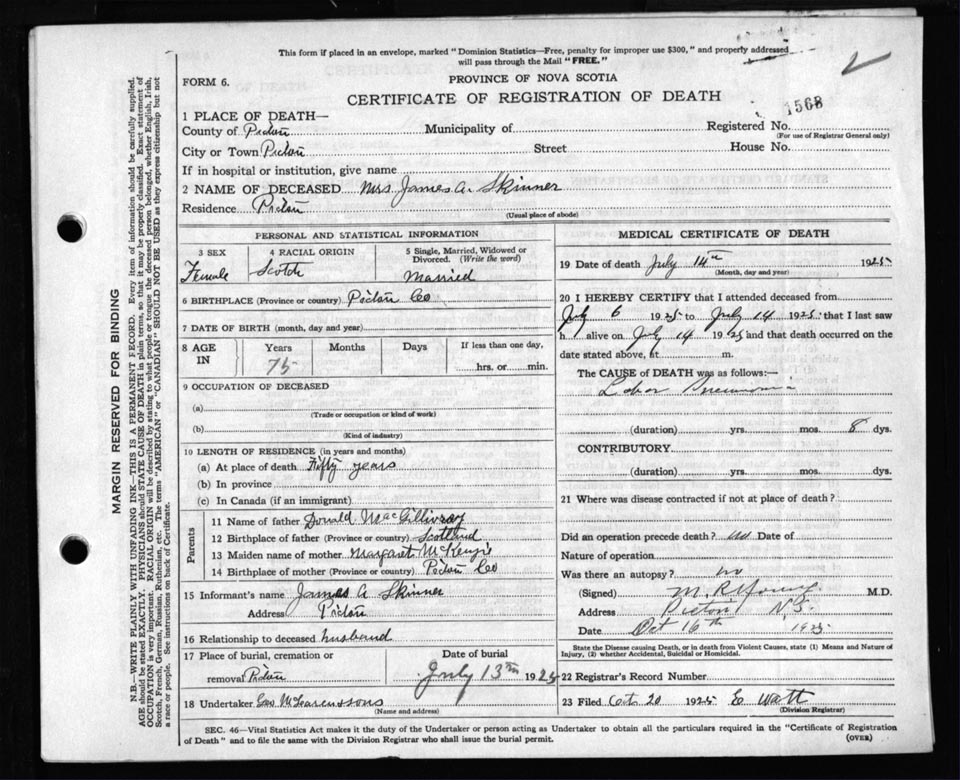 This form if placed in an envelope, marked "Dominion Statistics—Free, penalty for improper use $300," and property addressed
will pass through the Mail "FREE."
FORM 6.
PROVINCE OF NOVA SCOTIA
CERTIFICATE OF REGISTRATION OF DEATH
1568
1 PLACE OF DEATH—
County of Pictou Municipality of Registered No.
(For use of Registrar General only)
City or Town Pictou Street House No.
If in hospital or institution, give name
2 NAME OF DECEASED Mrs James A. Skinner
Residence Pictou
(Usual place of abode)
PERSONAL AND STATISTICAL INFORMATION
3 SEX 4 RACIAL ORIGIN 5 Single, Married, Widowed or Divorced. (Write the word)
Female Scotch Married
6 BIRTHPLACE (Province or country) Pictou Co
7 DATE OF BIRTH (month, day and year)
8 AGE IN Years Months Days If less than one day,
75 hrs. or min.
9 OCCUPATION OF DECEASED
(a)
(Trade or occupation or kind of work)
(b)
(Kind of industry)
10 LENGTH OF RESIDENCE (in years and months)
(a) At place of death Fifty years
(b) In province
(c) In Canada (if an immigrant)
Parents
11 Name of father Donald MacGillivray
12 Birthplace of father (Province or country) Scotland
13 Maiden name of mother Margaret McKenzie
14 Birthplace of mother (Province or country) Pictou Co
15 Informant's name James A Skinner
Address Pictou
16 Relationship to deceased husband
17 Place of burial, cremation or Date of burial
removal Pictou July 13th 1925
18 Undertaker Geo McLaren & Sons
(Name and address)
MEDICAL CERTIFICATE OF DEATH
19 Date of death July 14th 1925
(Month, day and year)
20 I HEREBY CERTIFY that I attended deceased from
July 6 1925 to July 14 1925 that I last saw
h alive on July 14 1925 and that death occurred on the
date stated above, at m.
The CAUSE of DEATH was as follows:—
Lobar Pneumonia
(duration) yrs. mos. 8 dys.
CONTRIBUTORY
(duration) yrs. mos. dys.
21 Where was disease contracted if not at place of death?
Did an operation precede death? no Date of
Nature of operation
Was there an autopsy? no
(Signed) M. R. Young M.D.
Address Pictou N.S.
Date Oct 16th 1925
State the Disease causing Death, or in death from Violent Causes, state (1) Means and Nature of
Injury, (2) whether Accidental, Suicidal or Homicidal.
22 Registrar's Record Number
23 Filed Oct 20 1925 E Watt
(Division Registrar)
SEC. 46—Vital Statistics Act makes it the duty of the Undertaker or person acting as Undertaker to obtain all the particulars required in the "Certificate of Registration
of Death" and to file the same with the Division Registrar who shall issue the burial permit.
(OVER)
MARGIN RESERVED FOR BINDING
N.B.—WRITE PLAINLY WITH UNFADING INK—THIS IS A PERMANENT RECORD. Every item of information should be carefully supplied.
AGE should be stated EXACTLY. PHYSICIANS should STATE CAUSE OF DEATH in plain terms, so that it may be properly classified. Exact statement of
OCCUPATION is very important. RACIAL ORIGIN will be described by stating to what people or tongue the deceased person belonged, whether English, Irish,
Scotch, French, German, Russian, Ruthenian, etc. The terms "AMERICAN" or "CANADIAN" SHOULD NOT BE USED as they express citizenship but not
a race or people. See instructions on back of Certificate.